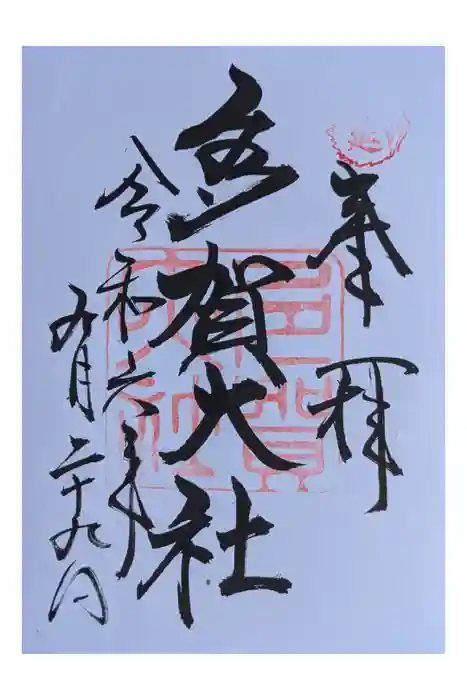 奉拝
賀大社
令和六年
九月二十九日